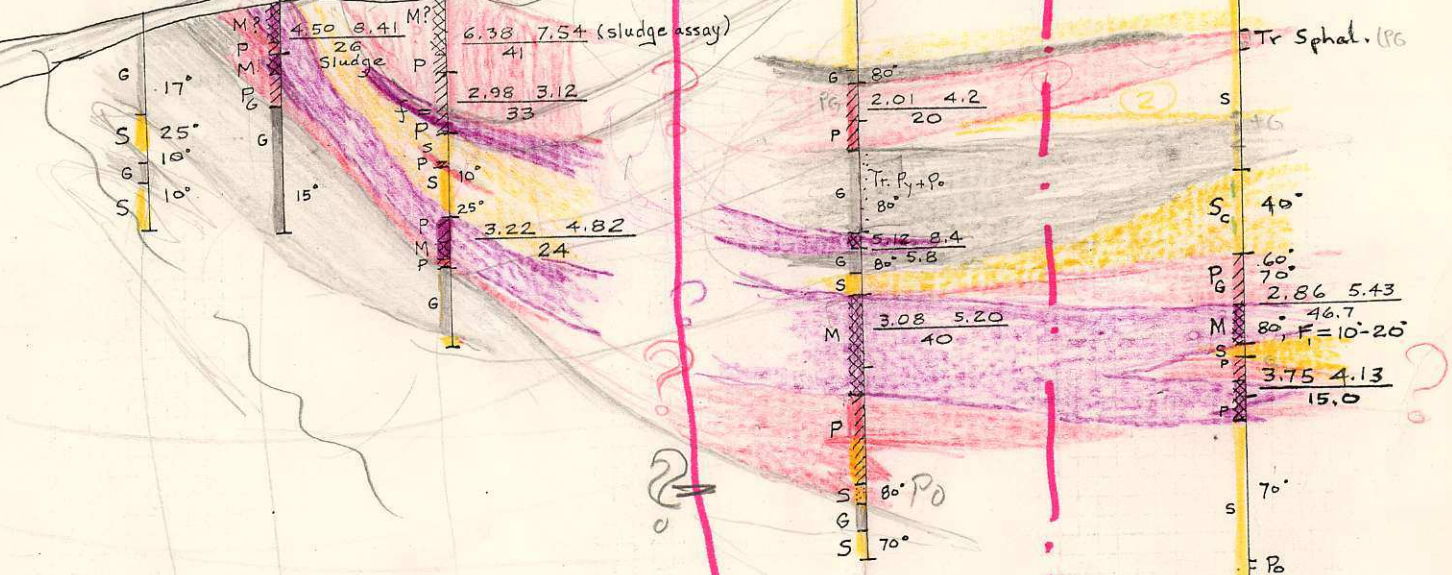 G
17°
S 25°
10°
G
10°
S
M?
P
M
P
G
G
15°
4.50 8.41
26
Sludge
M?
P
6.38 7.54 (sludge assay)
41
2.98 3.12
33
f
P
S
P
S
10°
25°
P
M
P
3.22 4.82
24
G
?
?
?
?
G 80°
PG
P
2.01 4.2
20
G
Tr. Py + Po
80°
5.12 8.4
5.8
G 80°
S
M
3.08 5.20
40
P
S 80° Po
G
S 70°
2
Tr Sphal. (PG
S
+G
Sc 40°
60°
PG 70°
2.86 5.43
46.7
M 80°, F₁ = 10°-20°
S
P
3.75 4.13
15.0
P
?
S 70°
Po